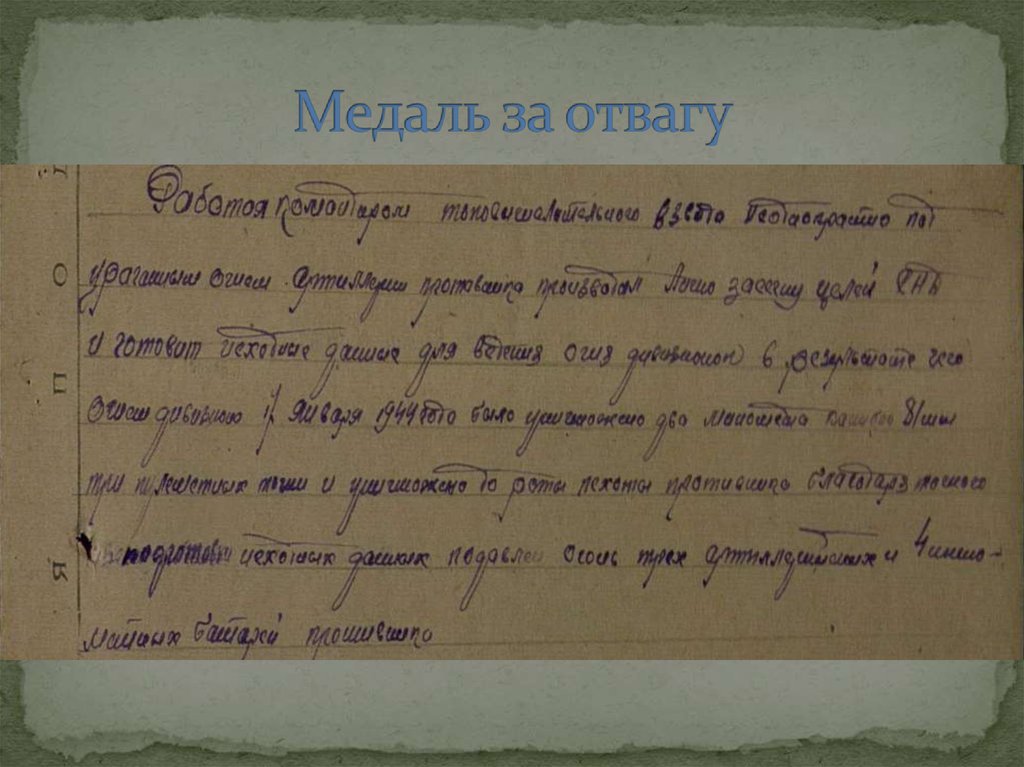 Медаль за отвагу
Работая командиром топовычислительного взвода Неоднократно под
ураганным огнем Артиллерии противника производил Лично засечку целей
и готовит исходные данные для ведения огня дивизионом в результате чего
Огнем дивизиона 17 Января 1944 года было уничтожено два миномета 81 мм
три пулеметных точки и уничтожено до роты пехоты противника благодаря точного
подготовки исходных данных подавлен огонь трех артиллерийских и 4 мино-
метных батарей противника
О
П
Я